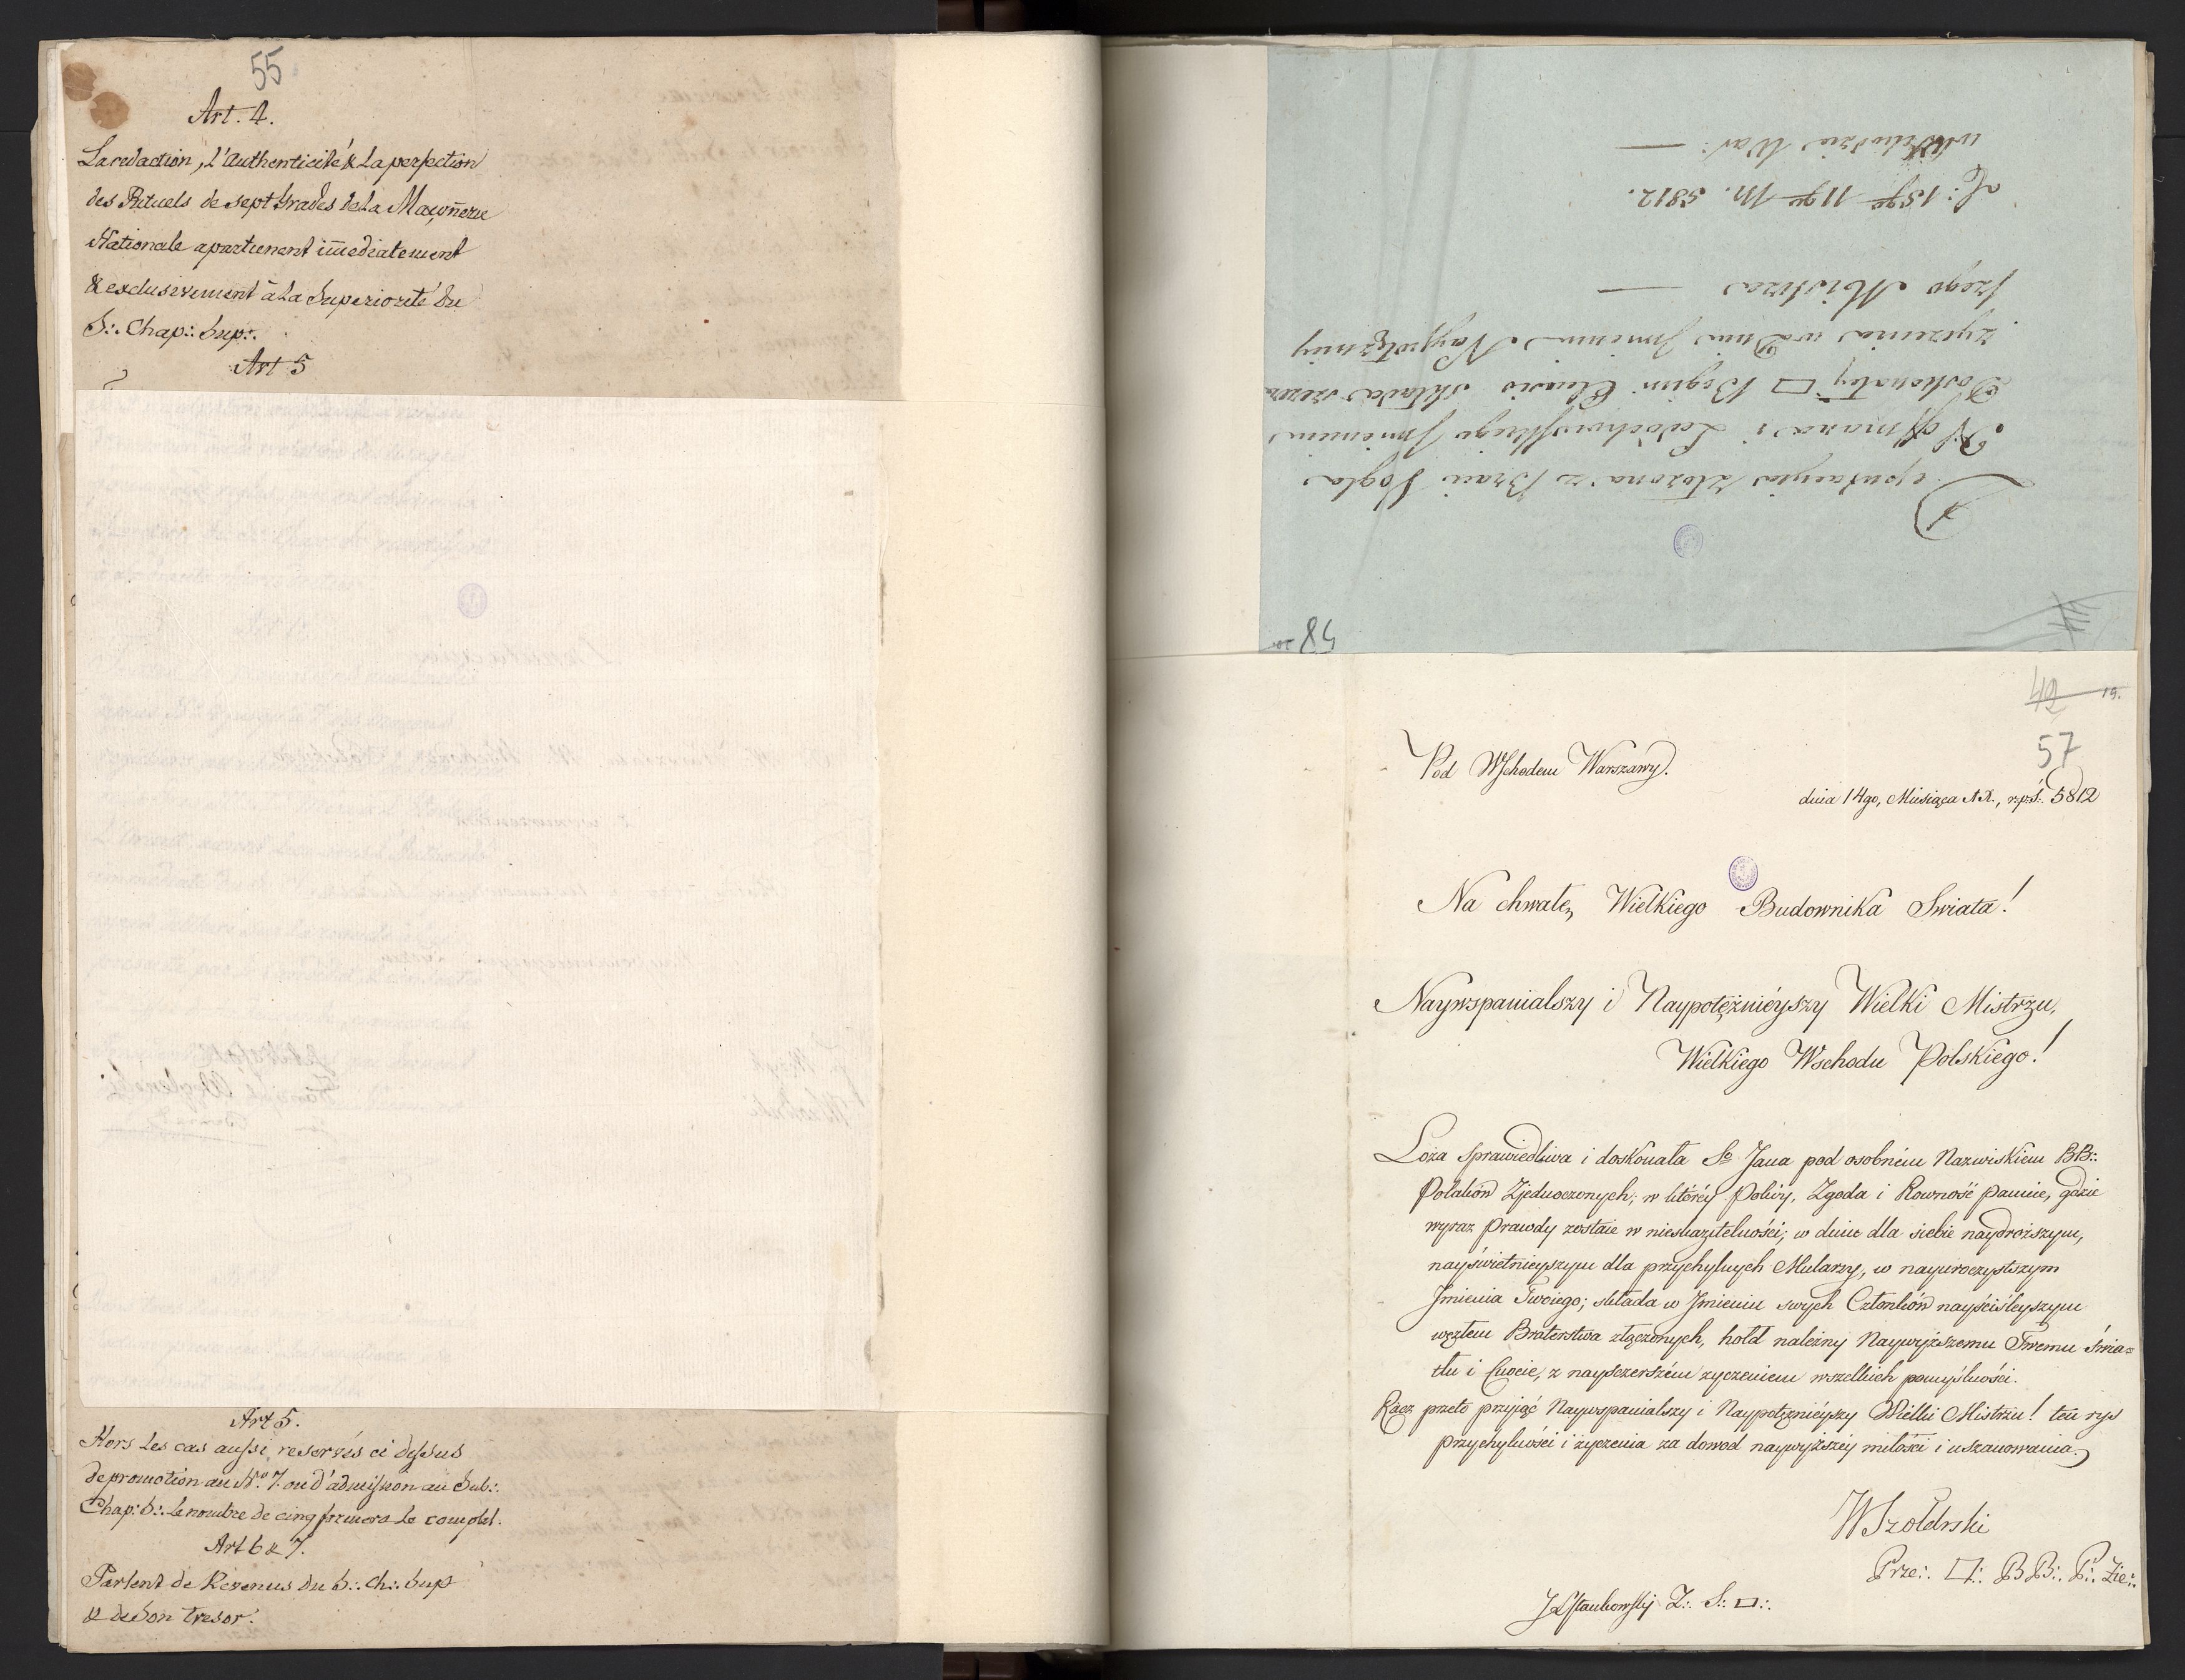 55
Art. 4.
La redaction, L'authenticité & La perfection
des Rituels de sept Grades de La Maçoñerie
Nationale apartienent im̄ediatement
& exclusivement à La Superiorité du
S∴ Chap∴ Sup∴
Art 5
Art 5.
Hors Les cas aussi reservés ci dessus
de promotion au Nº. 7. ou d'admission au Sub∴
Chap: S∴ Le nombre de cinq formera Le complet.
Art 6 & 7.
Parlent de Revenus du S∴ Ch∴ Sup
& de Son Tresor.
Deputacyia złożona z Braci Vogla
Hoffmana i Ledochowskiego Imieniem
Doskonałey □ Bogini Eleusis składa szczere
życzenia w Dniu Imienin Naypotężniey
szego Mistrza —
d: 13go 11go M. 5812.
w Wschodzie War: —
58
42 19.
57
Pod Wschodem Warszawy.
dnia 14go, Miesiąca XI., r:p:ś: 5812
Na chwałę, Wielkiego Budownika Swiata!
Naywspanialszy i Naypotężnieyszy Wielki Mistrzu,
Wielkiego Wschodu Polskiego!
Loża sprawiedliwa i doskonała Sº Jana pod osobném Nazwiskiem BB∴
Polaków Zjednoczonych, w którey Pokóy, Zgoda i Rowność panuie, gdzie
wyraz Prawdy zostaie w nieskazitelności; w dniu dla siebie naydroższym,
nayświetnieyszym dla przychylnych Mularzy, w nayuroczystszym
Jmienia Twoiego; składa w Jmieniu swych Członków nayściśleyszym
węzłem Braterstwa złączonych, hołd należny Naywyższemu Twemu świa=
tłu i Cnocie, z nayszczerszém życzeniem wszelkich pomyślności.
Racz przeto przyjąć Naywspanialszy i Naypotężnieyszy Wielki Mistrzu! ten rys
przychylności i życzenia za dowod naywyższéy miłości i uszanowania.
WSzołdrski
Prze∴ □∴ BB∴ P∴ Zie∴
JLStankowskij Z∴ S∴ □∴